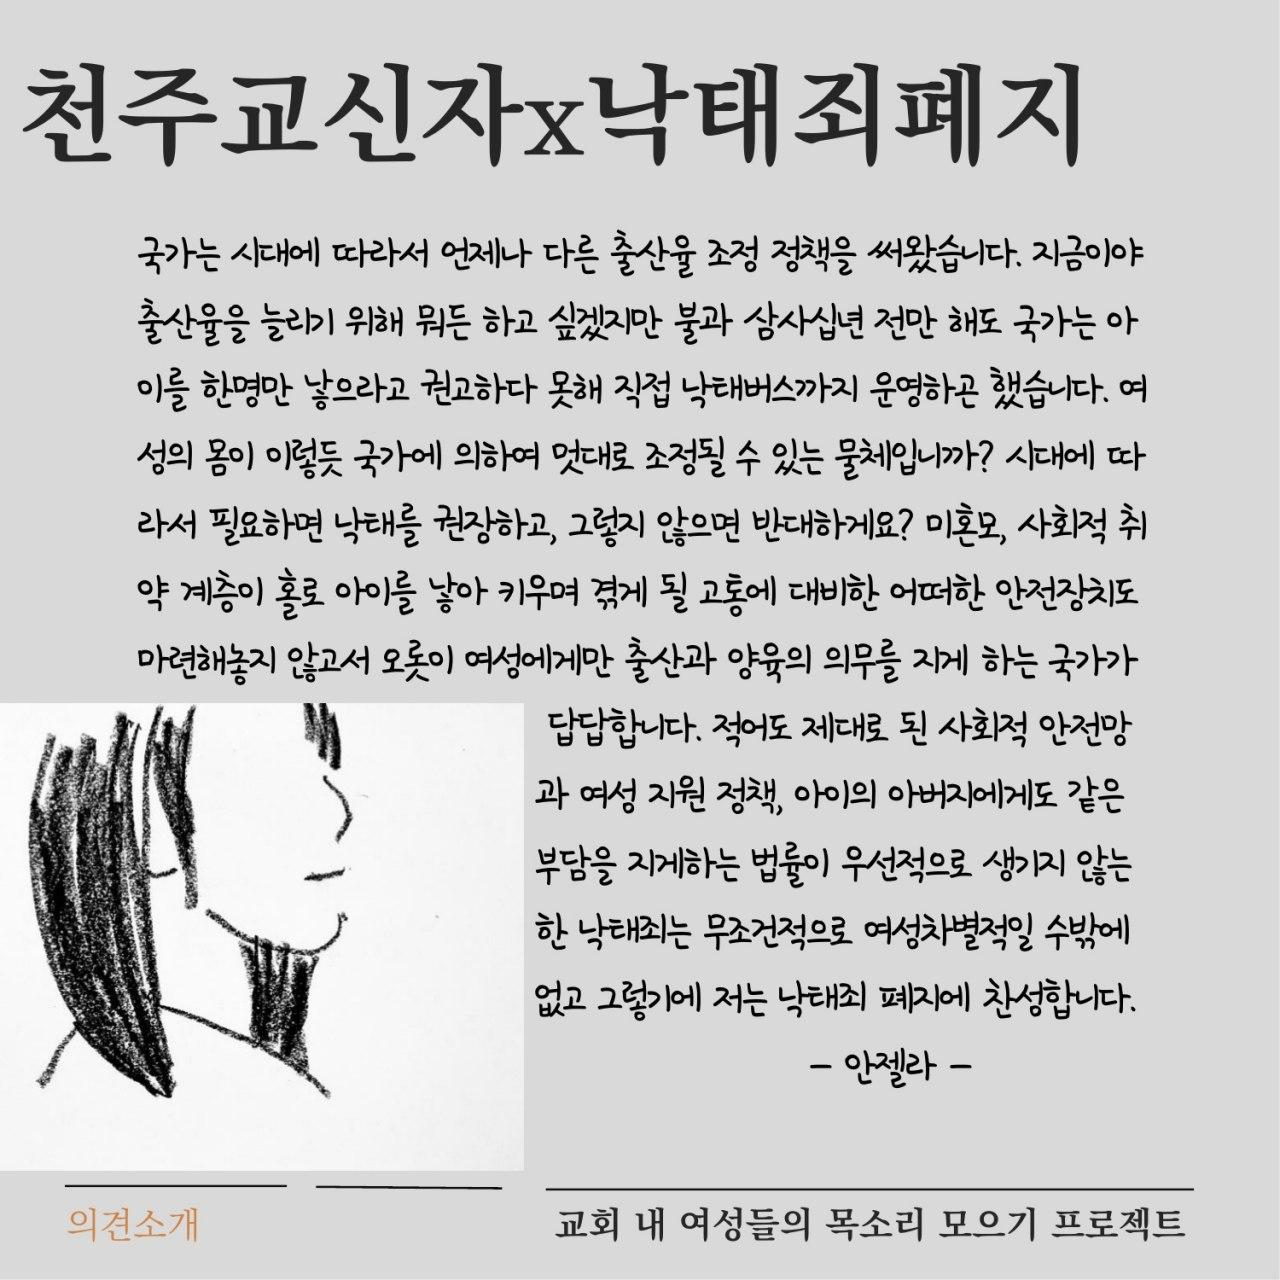 천주교신자x낙태죄폐지
국가는 시대에 따라서 언제나 다른 출산율 조정 정책을 써왔습니다. 지금이야
출산율을 늘리기 위해 뭐든 하고 싶겠지만 불과 삼사십년 전만 해도 국가는 아
이를 한명만 낳으라고 권고하다 못해 직접 낙태버스까지 운영하곤 했습니다. 여
성의 몸이 이렇듯 국가에 의하여 멋대로 조정될 수 있는 물체입니까? 시대에 따
라서 필요하면 낙태를 권장하고, 그렇지 않으면 반대하게요? 미혼모, 사회적 취
약 계층이 홀로 아이를 낳아 키우며 겪게 될 고통에 대비한 어떠한 안전장치도
마련해놓지 않고서 오롯이 여성에게만 출산과 양육의 의무를 지게 하는 국가가
답답합니다. 적어도 제대로 된 사회적 안전망
과 여성 지원 정책, 아이의 아버지에게도 같은
부담을 지게하는 법률이 우선적으로 생기지 않는
한 낙태죄는 무조건적으로 여성차별적일 수밖에
없고 그렇기에 저는 낙태죄 폐지에 찬성합니다.
– 안젤라 –
의견소개
교회 내 여성들의 목소리 모으기 프로젝트